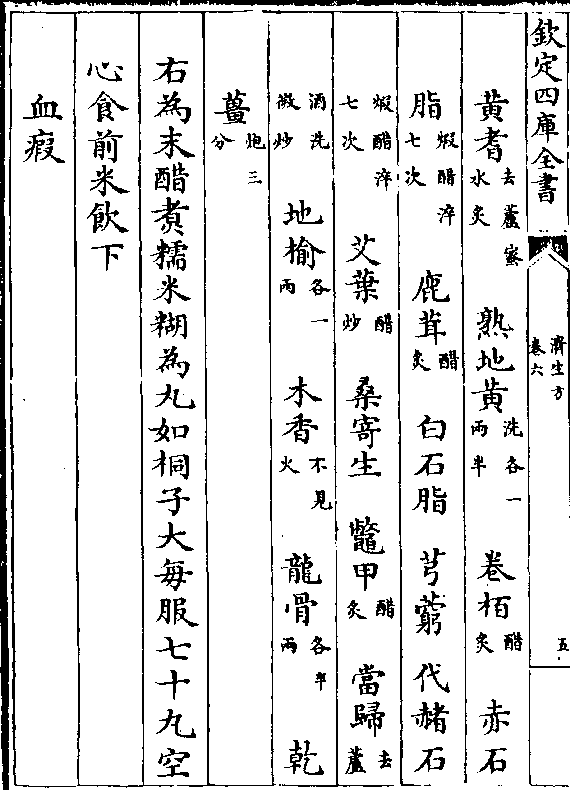 欽定四庫全書 濟生方 卷六 五
黃耆去蘆蜜水炙 熟地黃洗各一兩半 卷栢醋炙 赤石
脂煆醋淬七次 鹿茸醋炙 白石脂 芎藭 代赭石
煆醋淬七次 艾葉醋炒 桑寄生 鼈甲醋炙 當歸去蘆
酒洗微炒 地榆各一兩 木香不見火 龍骨各半兩 乾
薑炮三分
右為末醋煑糯米糊為丸如桐子大每服七十九空
心食前米飲下
血瘕